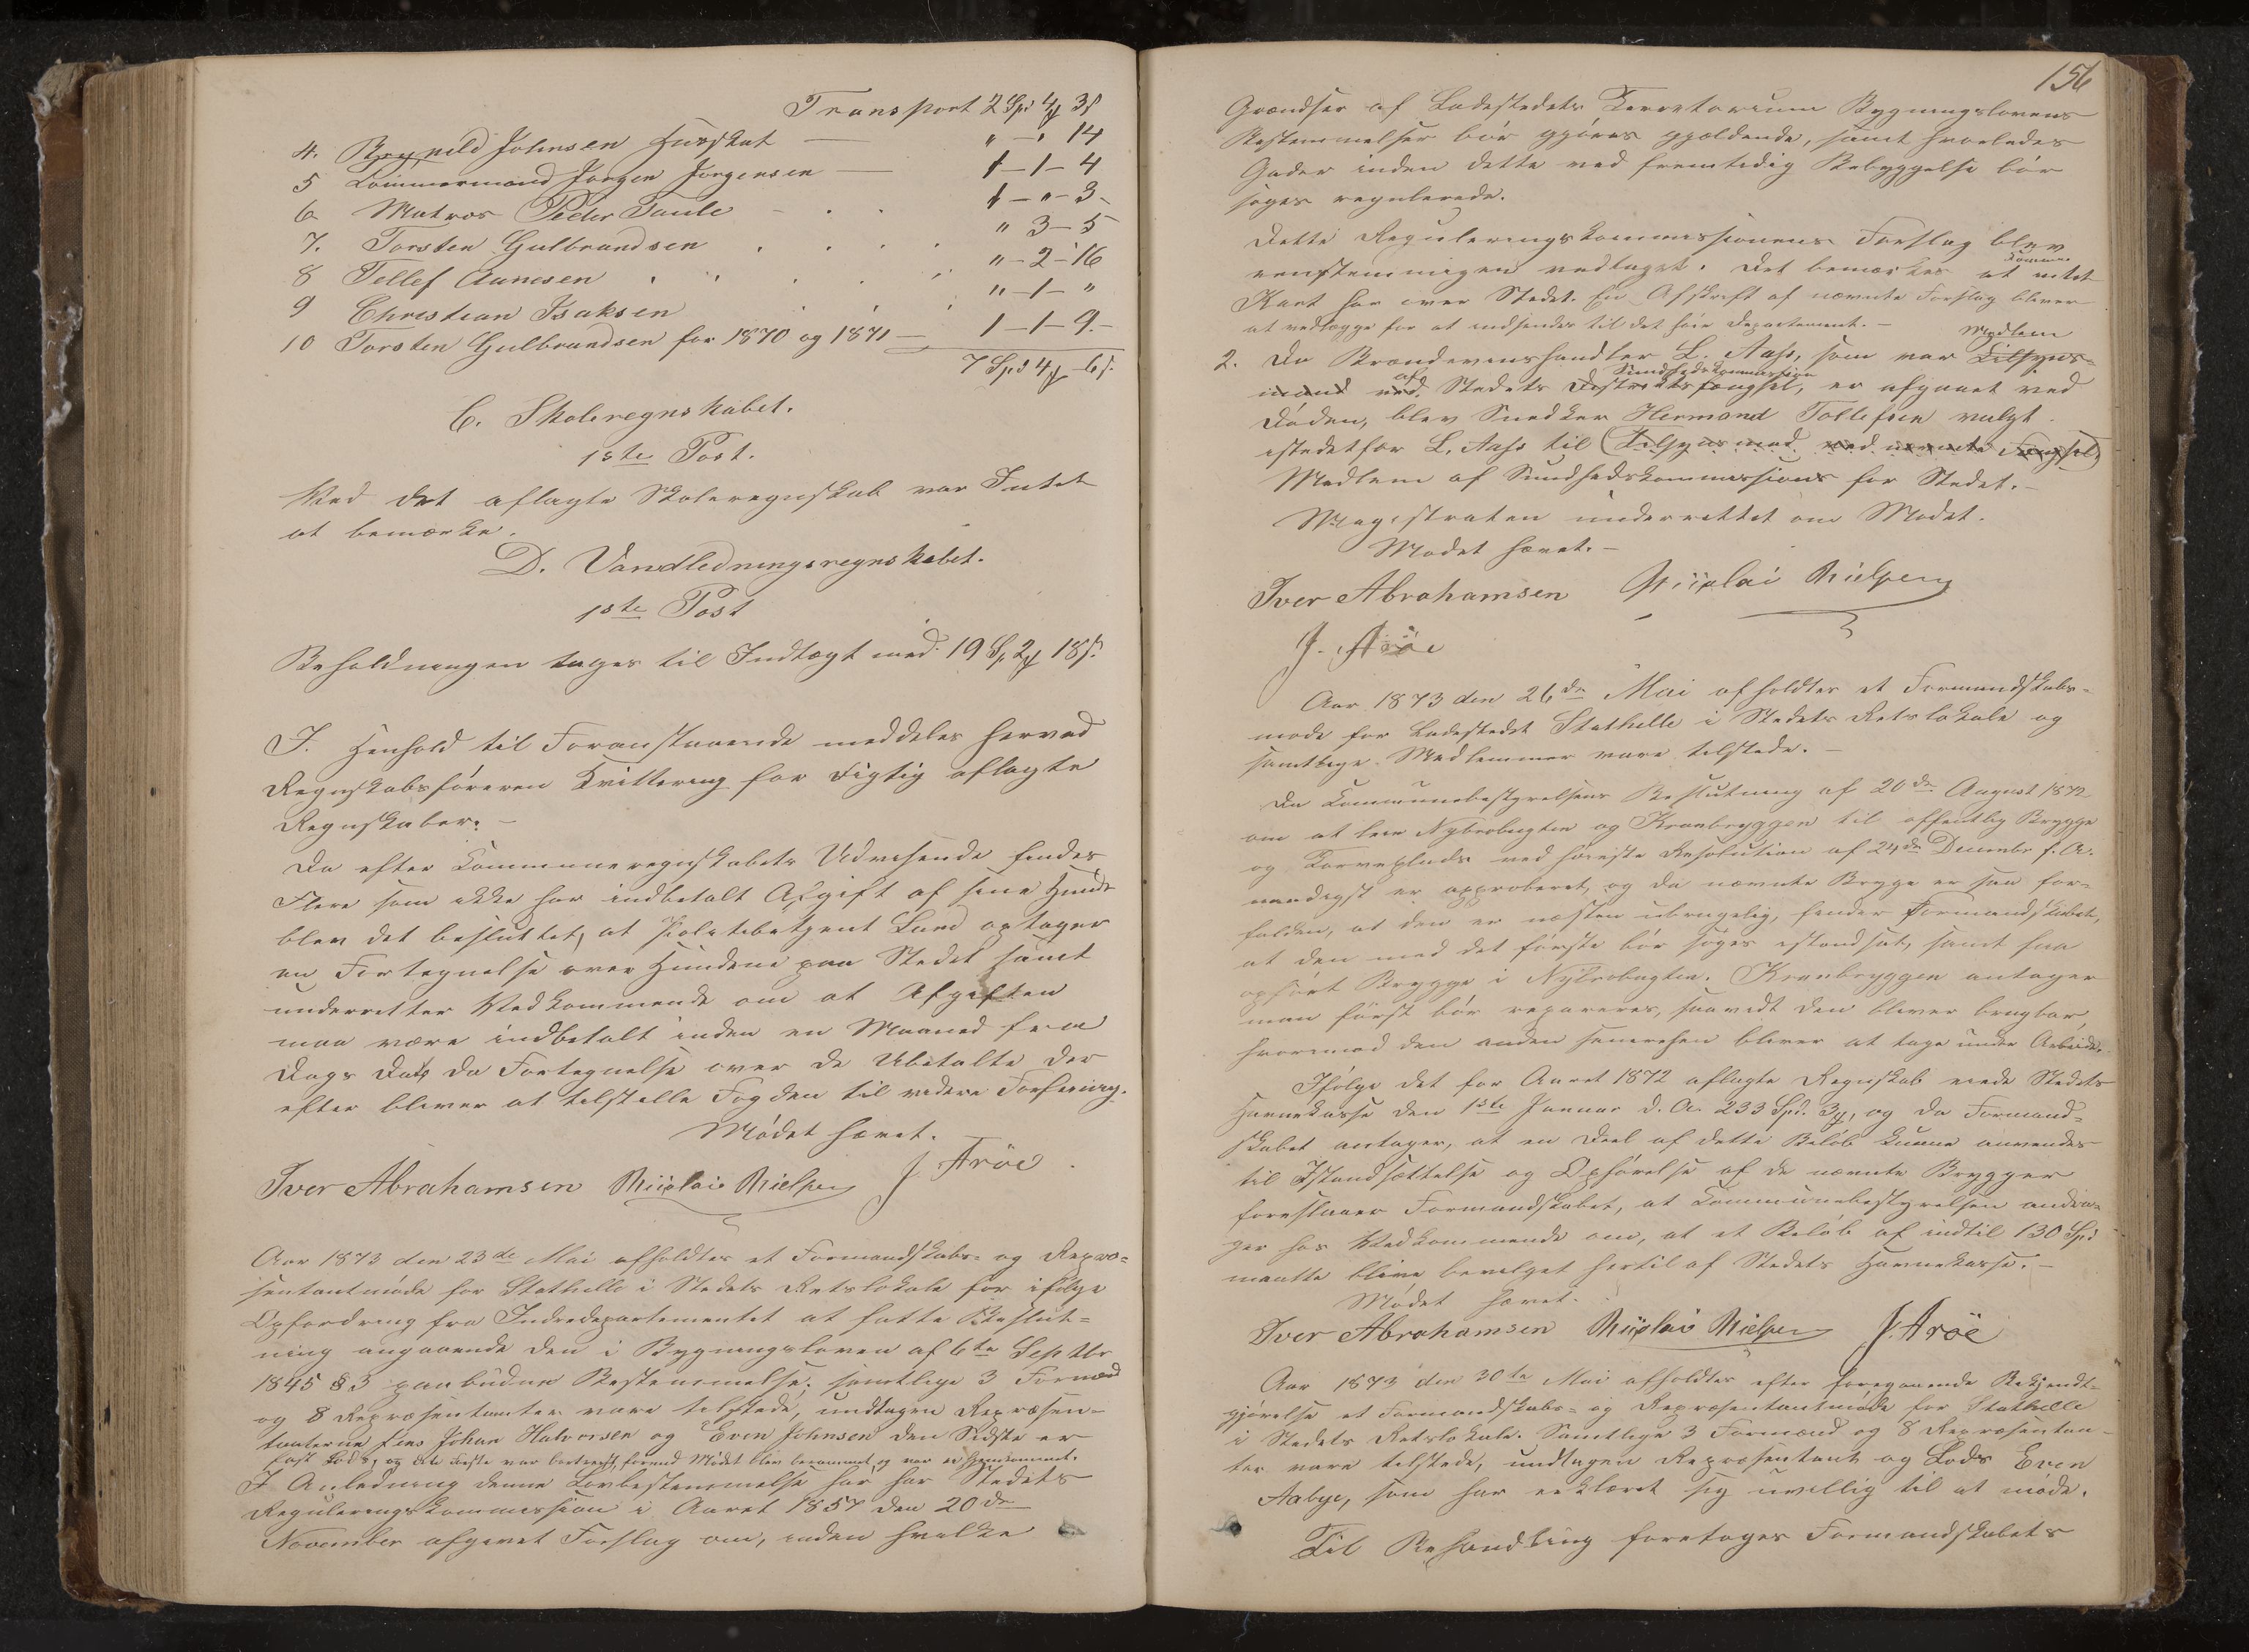 Transport 2 Spd 4 ₰ 3 ß
4. Brynild Johnsen Huusskat — " – " 14
5 Tømmermand Jørgen Jørgensen — 1 – 1 – 4
6 Matros Peder Taule 1 – " – 3 –
7. Torsten Gulbrandsen " 3 – 5
8 Tellef Aanesen " – 2 – 16
9 Christian Isaksen " – 1 – "
10 Torsten Gulbrandsen for 1870 og 1871 — 1 – 1 – 9. –
7 Spd 4 ₰ – 6 ß.
C. Skoleregnskabet.
1ste Post.
Ved det aflagte Skoleregnskab var Intet
at bemærke.
D. Vandledningsregnskabet.
1ste Post
Beholdningen tages til Indtægt med 19 Sp 2 ₰ 18 ß.
I Henhold til Foranstaaende meddeles herved
Regnskabsføreren Kvittering for rigtig aflagte
Regnskaber. –
Da efter Kommuneregnskabets Udvisende findes
Flere som ikke har indbetalt Afgift af sine Hunde
blev det besluttet, at Politibetjent Lund optager
en Fortegnelse over Hundene paa Stedet samt
underretter Vedkommende om at Afgiften
maa være indbetalt inden en Maaned fra
Dags Dato da Fortegnelse over de Ubetalte der
efter bliver at tilstille Fogden til videre Forføining.
Mødet hævet.
Iver Abrahamsen Nicolai Nielsen J. Arøe
Aar 1873 den 23de Mai afholdtes et Formandskabs- og Repræ-
sentantmøde for Stathelle i Stedets Retslokale for ifølge
Opfordring fra Indredepartementet at fatte Beslut-
ning angaaende den i Bygningsloven af 6te Septbr
1845 § 3 paabudne Bestemmelse; samtlige 3 Formænd
og 8 Repræsentanter vare tilstede, undtagen Repræsen-
tanterne Jens Johan Halvorsen og Even Johnsen den Sidste er
fast Lods, og den Første var bortreist, forend Mødet blev berammet og var ei hjemkommet.
I Anledning denne Lovbestemmelse har har Stedets
Reguleringskommission i Aaret 1857 den 20de
November afgivet Forslag om, inden hvilke
156
Grændser af Ladestedets Territorium Bygningslovens
Bestemmelser bør gjøres gjældende, samt hvorledes
Gader inden dette ved fremtidig Bebyggelse bør
søges regulerede.
Dette Reguleringskommissionens Forslag blev
eenstemmigen vedtaget. Det bemærkes at intet
Kart har over Stedet. En Afskrift af nævnte Forslag bliver
at vedlægge for at indsendes til det høie Departement. –
Medlem
2. Da Brændevinshandler L. Aass, som var Tilsyns-
af Sundhedskommission
mand ved Stedets Distriktsfængsel, er afgaaet ved
Døden, blev Snedker Hermand Tollefsen valgt
istedetfor L. Aass til (Tilsynsmand ved nævnte Fængsel)
Medlem af Sundhedskommissions for Stedet. –
Magistraten underrettet om Mødet.
Mødet hævet. –
Iver Abrahamsen Nicolai Nielsen
J. Arøe
Aar 1873 den 26de Mai afholdtes et Formandskabs-
møde for Ladestedet Stathelle i Stedets Retslokale og
samtlige Medlemmer vare tilstede. –
Da Kommunebestyrelsens Beslutning af 20de August 1872
om at leie Nybrobugten og Kranbryggen til offentlig Brygge
og Torveplads ved høieste Resolution af 24de Decembr f. A.
naadigst er approberet, og da nævnte Brygge er saa for-
falden, at den er næsten ubrugelig, finder Formandskabet,
at den med det første bør søges istandsat, samt faa
opført Brygge i Nybrobugten. Kranbryggen antager
man først bør repareres, saavidt den bliver brugbar,
hvorimod den anden senerehen bliver at tage under Arbeide.
Ifølge det for Aaret 1872 aflagte Regnskab eiede Stedets
Havnekasse den 1ste Januar d. A. 233 Spd. 3 ₰, og da Formand-
skabet antager, at en Deel af dette Beløb kunne anvendes
til Istandsættelse og Opførelse af de nævnte Brygger
foreslaaer Formandskabet, at Kommunebestyrelsen andra-
ger hos Vedkommende om, at et Beløb af indtil 130 Spd
maatte blive bevilget hertil af Stedets Havnekasse. –
Mødet hævet.
Iver Abrahamsen Nicolai Nielsen J. Arøe
Aar 1873 den 30te Mai afholdtes efter foregaaende Bekjendt-
gjørelse et Formandskabs- og Repræsentantmøde for Stathelle
i Stedets Retslokale. Samtlige 3 Formænd og 8 Repræsentan-
ter vare tilstede, undtagen Repræsentant og Lods Even
Aabye, som har erklæret sig uvillig til at møde.
Til Behandling foretoges Formandskabets